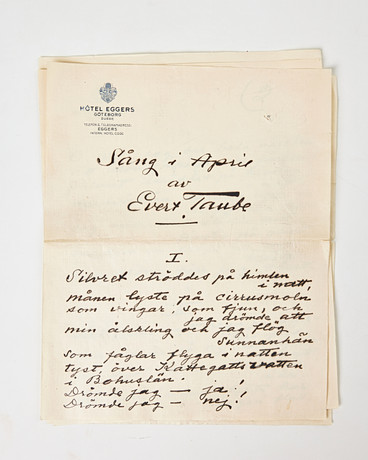 HÔTEL EGGERS
GÖTEBORG
EGGERS
Sång i April
av
Evert Taube
I.
Silvret ströddes på himlen
i natt,
månen lyste på cirrusmoln
som vingar, som fjun, och
jag drömde att
min älskling och jag flög
Sunnanhän
som fåglar flyga i natten
tyst över Kattegattsvatten
i Bohuslän.
Drömde jag — ja!
Drömde jag — nej!